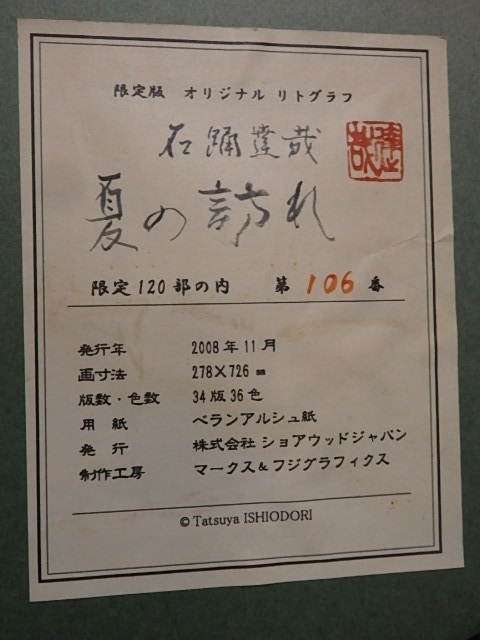 限定版 オリジナル リトグラフ
石踊達哉
夏の訪れ
限定120部の内 第 106 番
発行年 2008年11月
画寸法 278×726㎜
版数・色数 34版36色
用紙 ベランアルシュ紙
発行 株式会社 ショアウッドジャパン
制作工房 マークス&フジグラフィクス
© Tatsuya ISHIODORI